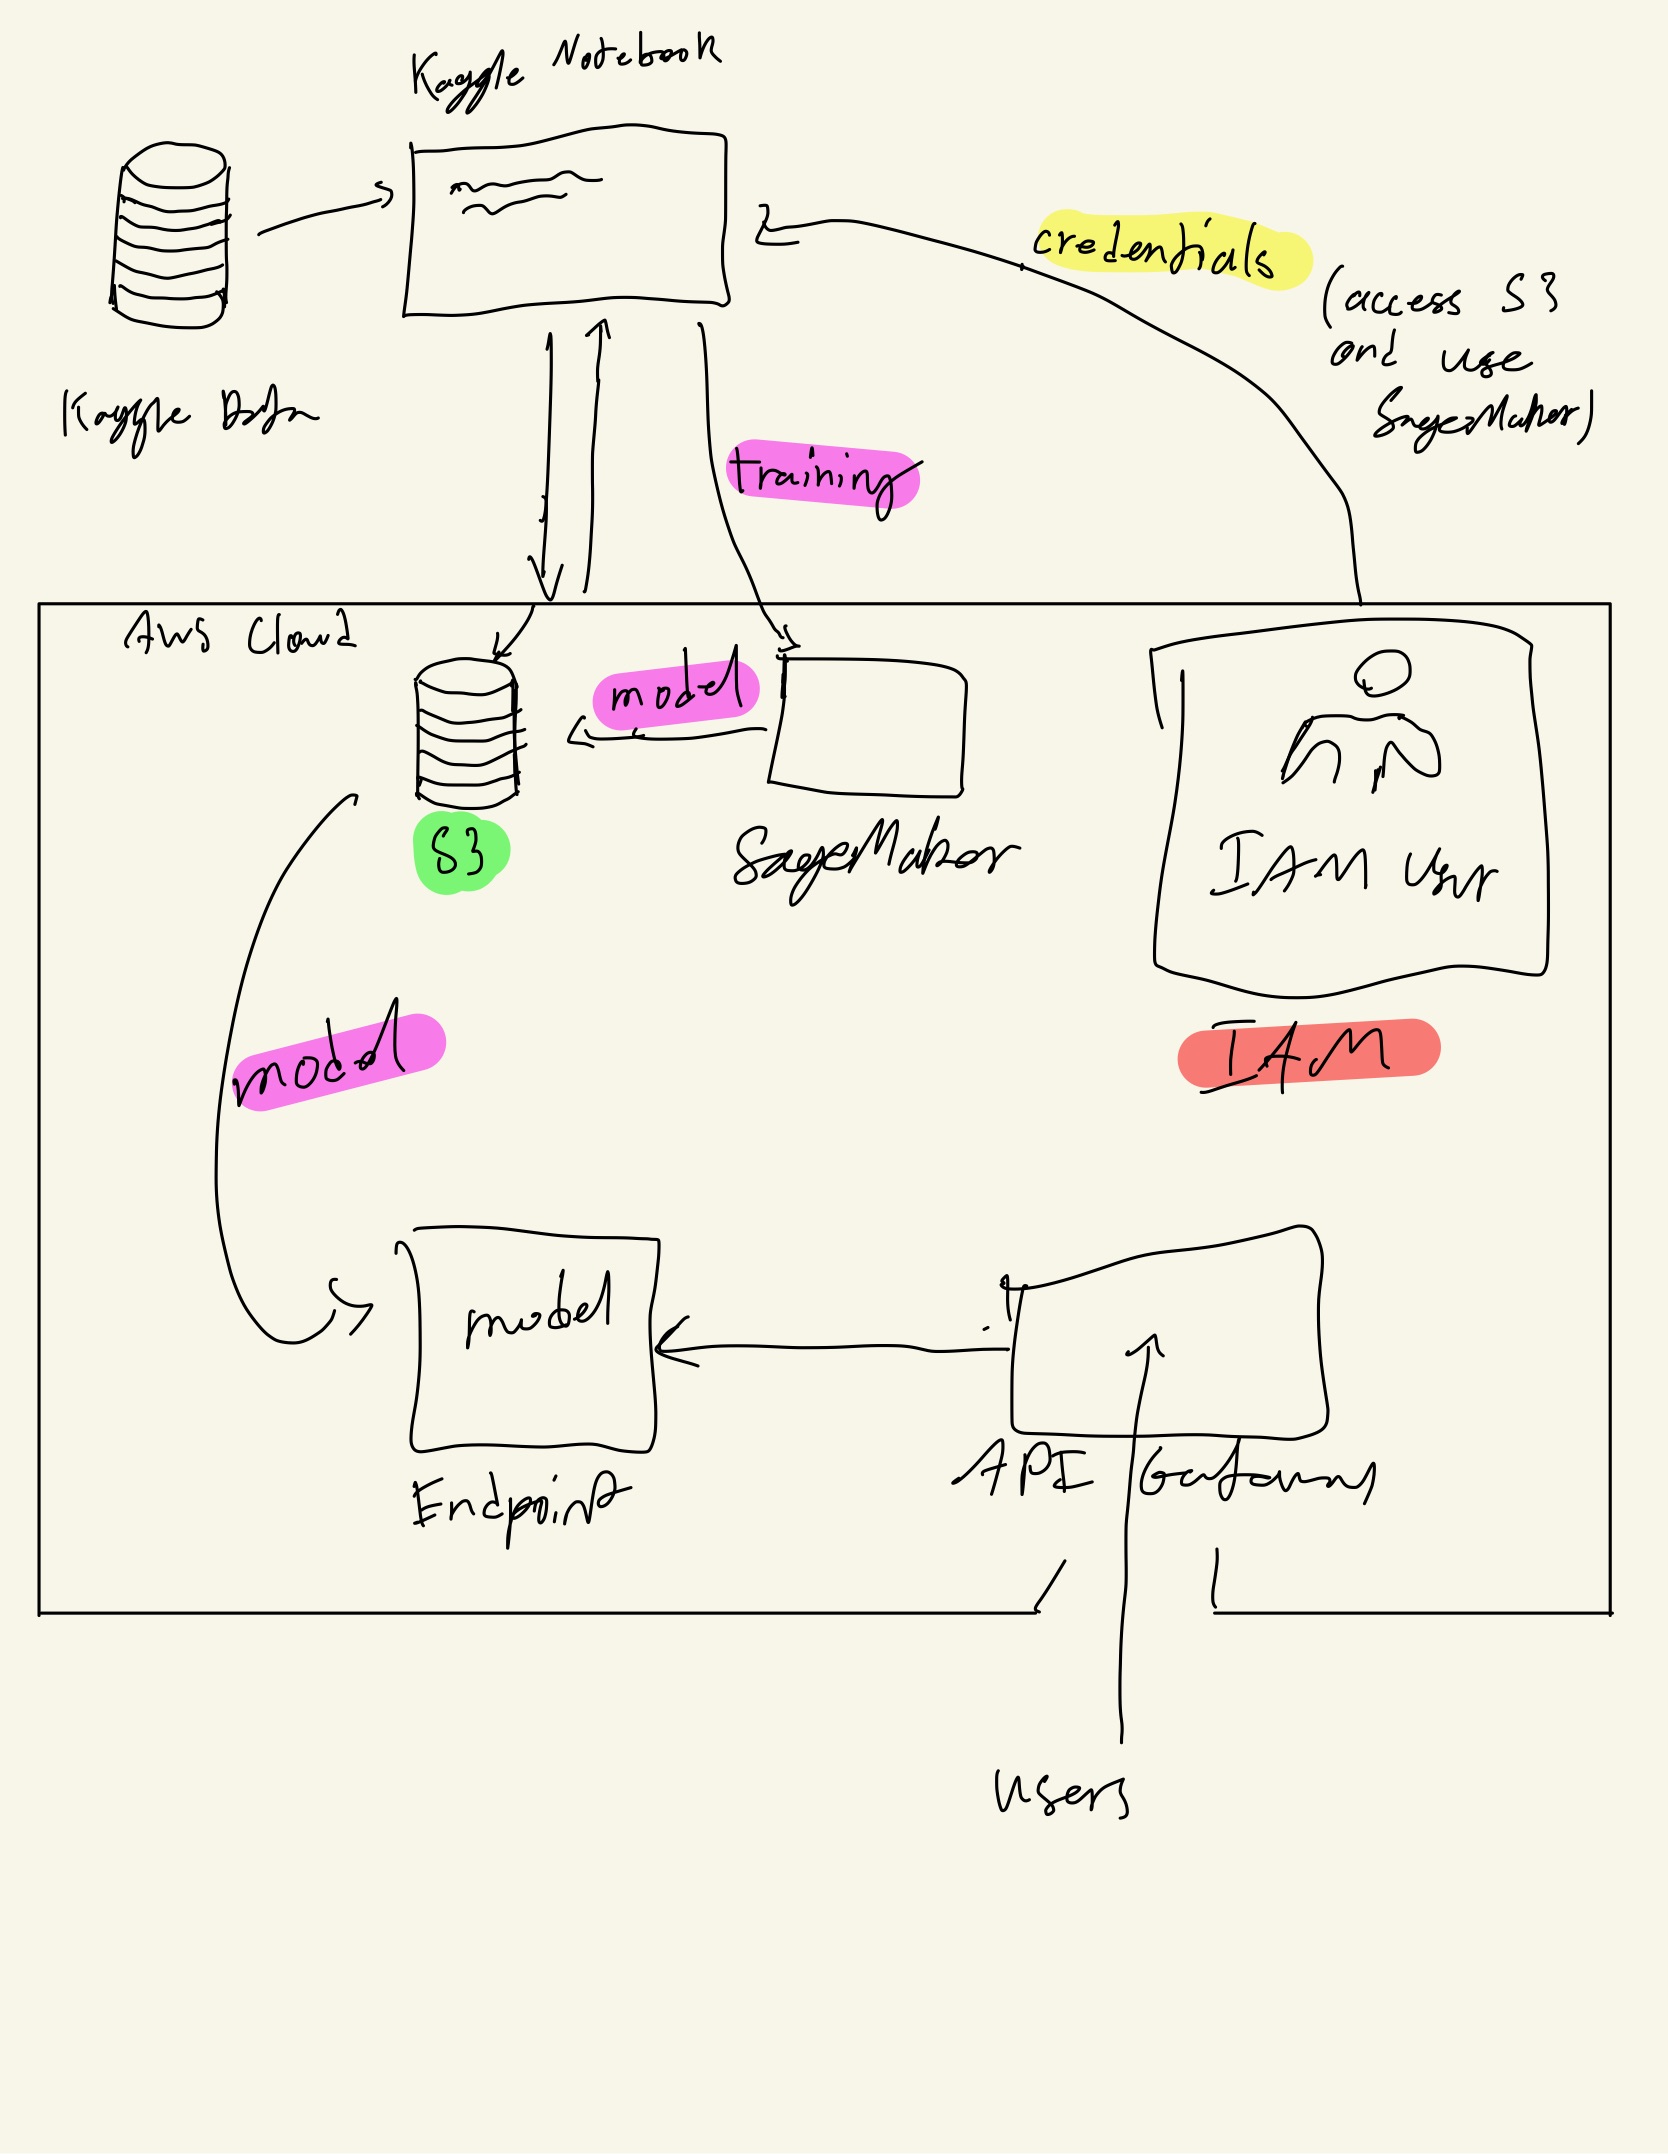 Kaggle Notebook
credentials
(access S3
and use
SageMaker)
Kaggle Data
training
AWS Cloud
model
S3
SageMaker
IAM User
model
IAM
model
Endpoint
API Gateway
Users